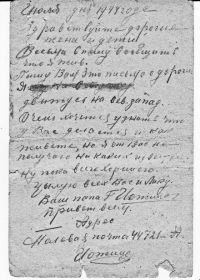 6 июля дня 1944 года
Здравствуйте дорогие
жена и дети!
Весьма спешу сообщить
что я жив.
Пишу Вам это письмо с дороги
Я
двигуся на сев. запад.
Очень хочется узнать что
у Вас делается и как
живете, но я от Вас не
получаю никаких известий.
Ну пока всего хорошего
целую всех Вас и Лялю.
Ваш папа Г.
Привет всем.
Адрес
Полевая почта 44721-А